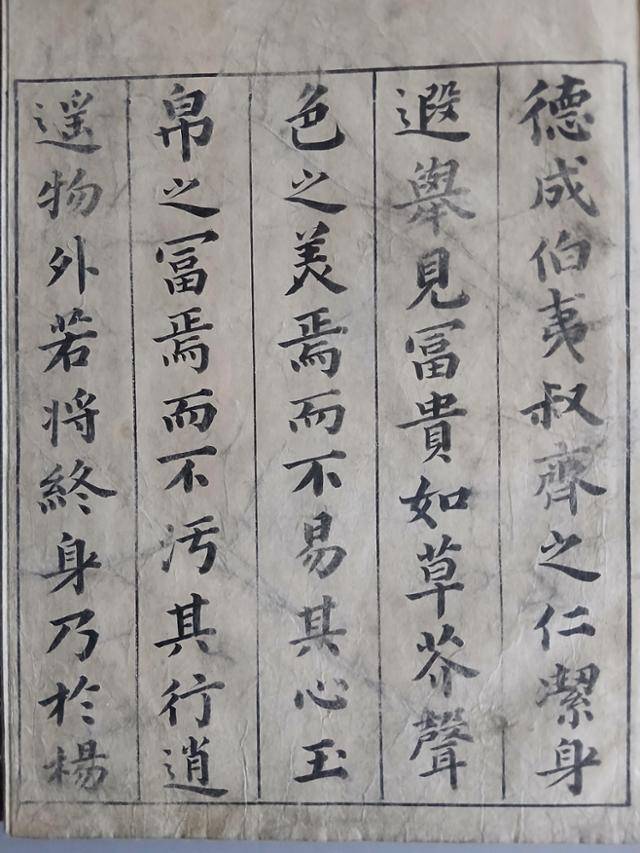 德成伯夷叔齊之仁潔身
遐舉見冨貴如草芥聲
色之美焉而不易其心玉
帛之冨焉而不汚其行逍
遥物外若将終身乃於楊